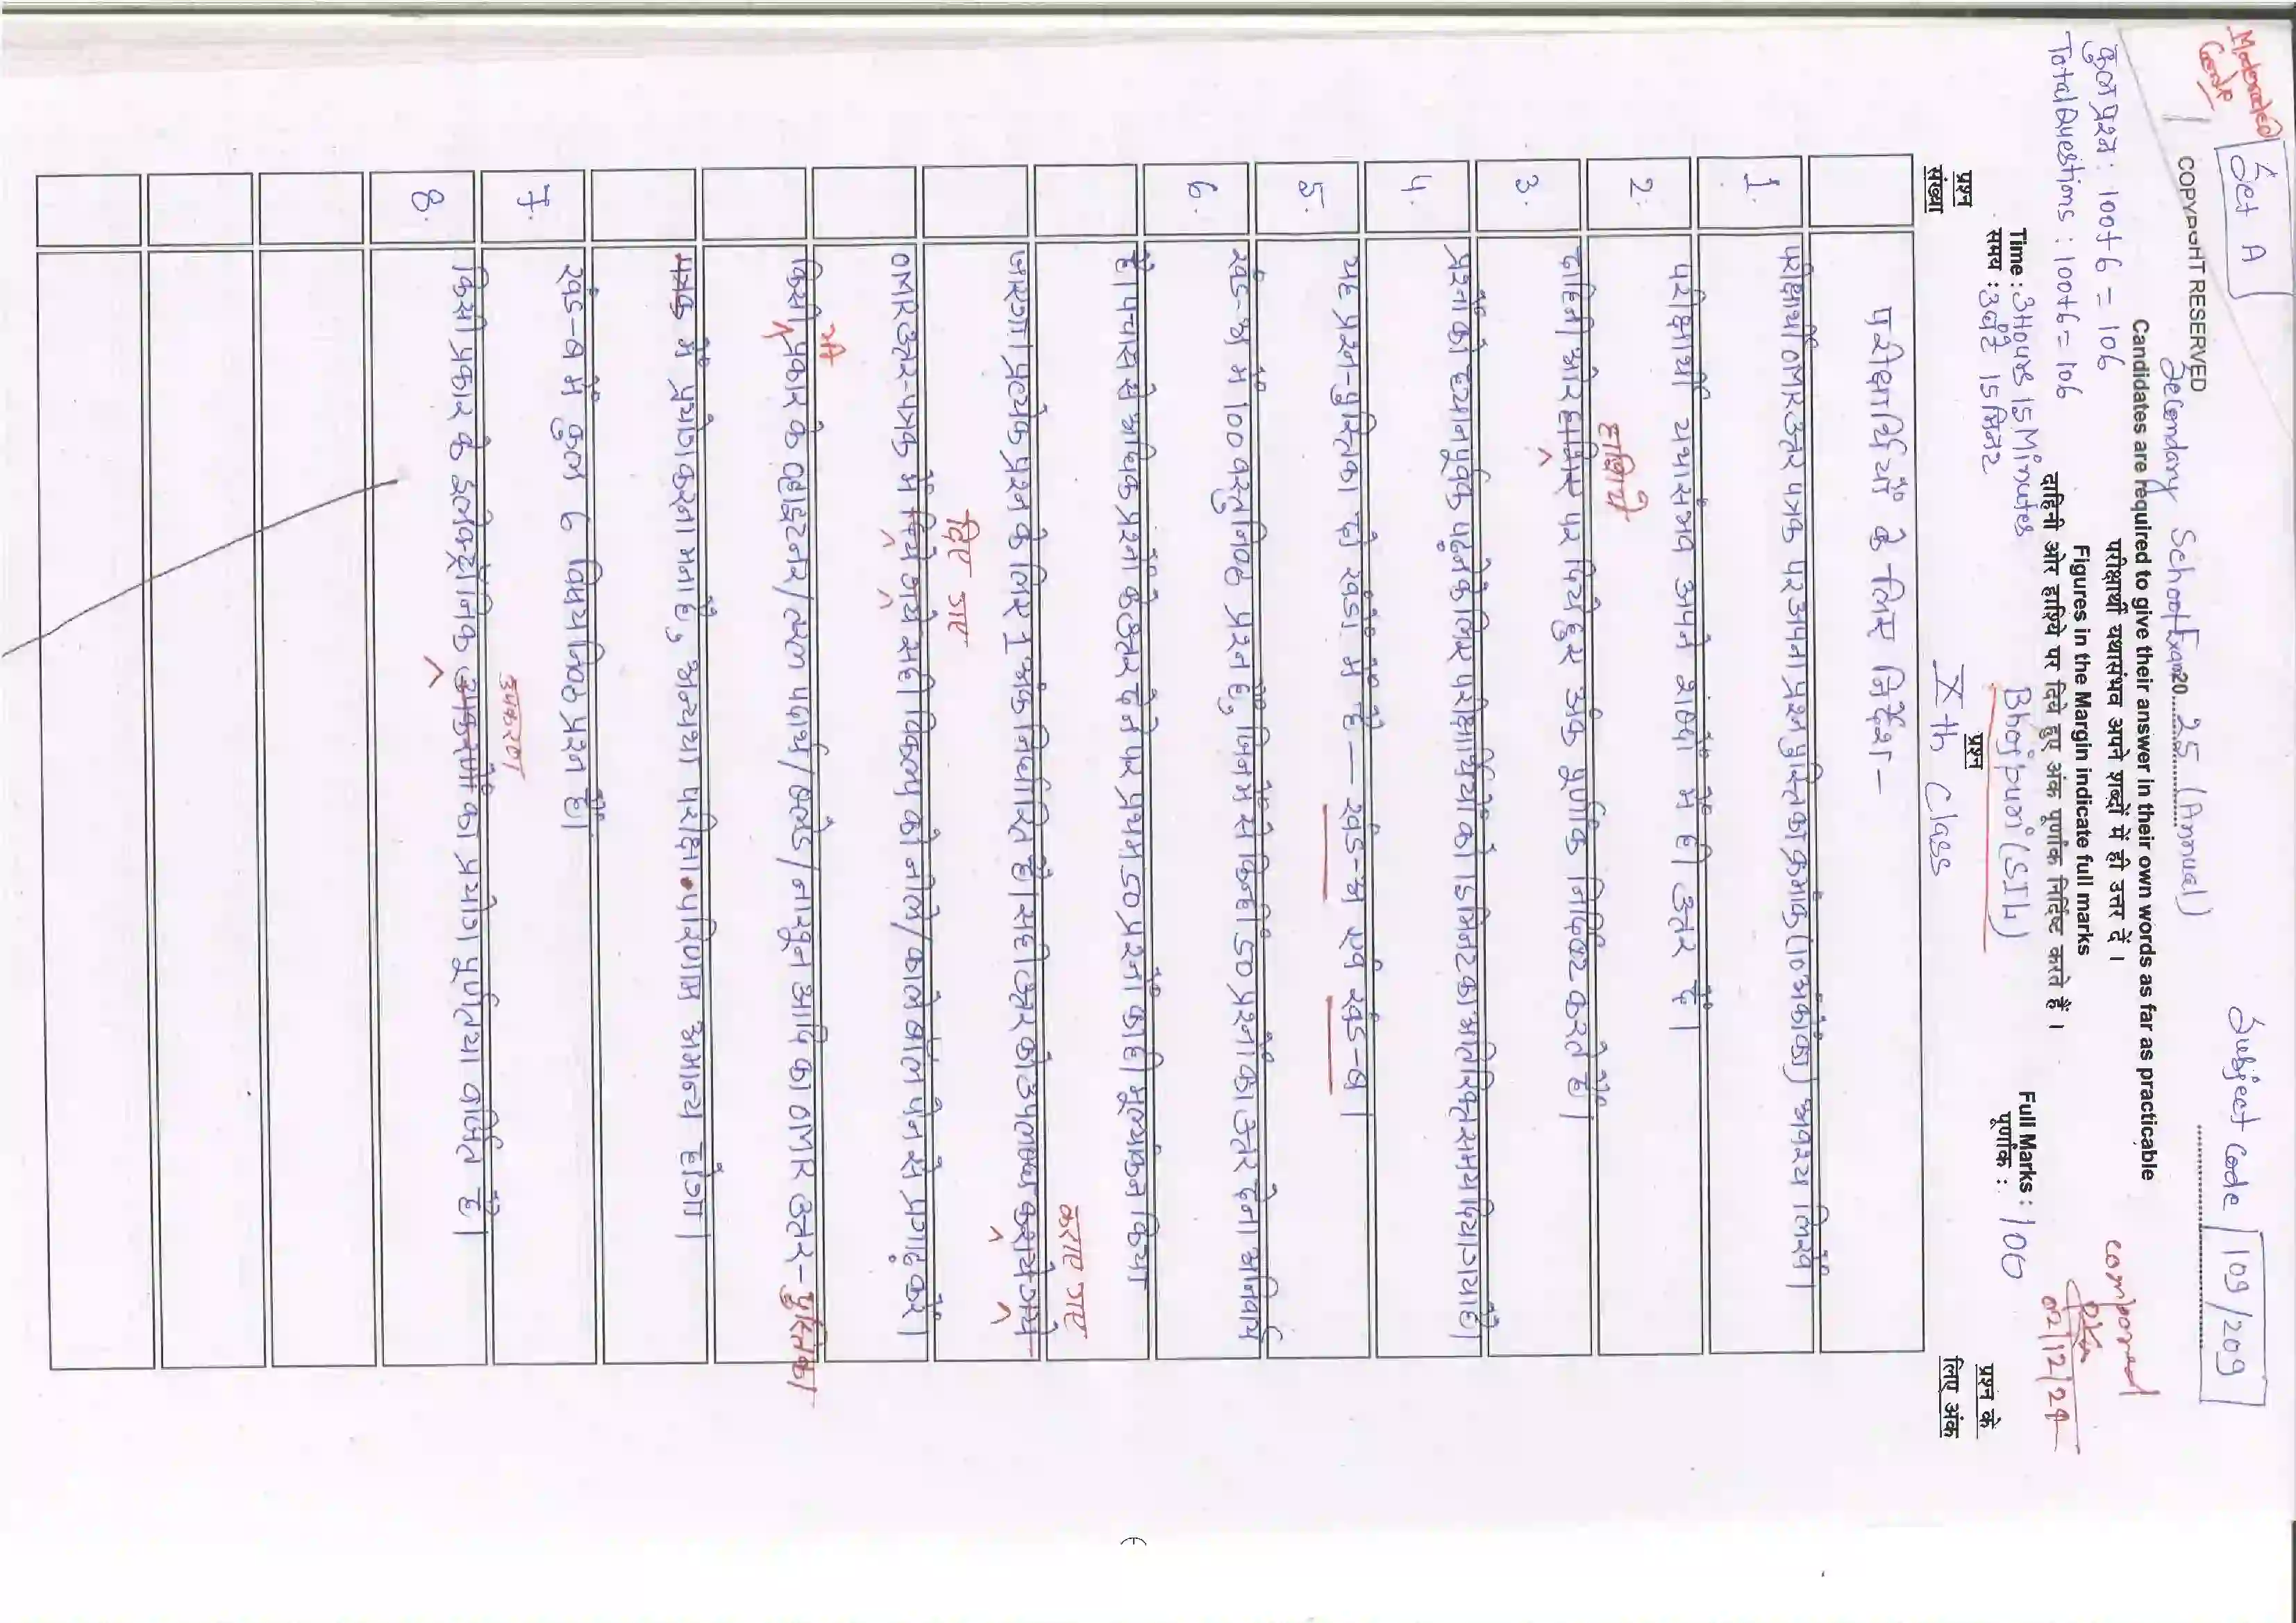 Moderated
Set A
Subject Code 109/209
COPYRIGHT RESERVED
Secondary School Exam 2025 (Annual)
Candidates are required to give their answer in their own words as far as practicable
composed
02/12/24
परीक्षार्थी यथासंभव अपने शब्दों में ही उत्तर दें ।
कुल प्रश्न : 100+6 = 106
Figures in the Margin indicate full marks
Total Questions : 100+6 = 106
दाहिनी ओर हाशिये पर दिये हुए अंक पूर्णांक निर्दिष्ट करते हैं ।
Time : 3 Hours 15 Minutes
Bhojpuri (SIL)
Full Marks : 100
समय : 3 घंटे 15 मिनट
पूर्णांक :
प्रश्न संख्या
प्रश्न
प्रश्न के लिए अंक
Xth Class
परीक्षार्थियों के लिए निर्देश —
1. परीक्षार्थी OMR उत्तर पत्रक पर अपना प्रश्न पुस्तिका क्रमांक (10 अंकों का) अवश्य लिखें।
2. परीक्षार्थी यथासंभव अपने शब्दों में ही उत्तर दें।
हाशिये
3. दाहिनी ओर हाशिए पर दिये हुए अंक पूर्णांक निर्दिष्ट करते हैं।
4. प्रश्नों को ध्यानपूर्वक पढ़ने के लिए परीक्षार्थियों को 15 मिनट का अतिरिक्त समय दिया गया है।
5. यह प्रश्न-पुस्तिका दो खंडों में है — खंड-अ एवं खंड-ब।
6. खंड-अ में 100 वस्तुनिष्ठ प्रश्न हैं, जिनमें से किन्हीं 50 प्रश्नों का उत्तर देना अनिवार्य
है। पचास से अधिक प्रश्नों के उत्तर देने पर प्रथम 50 प्रश्नों का ही मूल्यांकन किया
कराए गए
जाएगा। प्रत्येक प्रश्न के लिए 1 अंक निर्धारित है। सही उत्तर को उपलब्ध कराये गये
दिए गए
OMR उत्तर-पत्रक में दिये गये सही विकल्प को नीले/काले बॉल पेन से प्रगाढ़ करें।
भी
किसी प्रकार के व्हाइटनर/तरल पदार्थ/ब्लेड/नाखून आदि का OMR उत्तर-पुस्तिका
पत्रक में प्रयोग करना मना है, अन्यथा परीक्षा परिणाम अमान्य होगा।
7. खंड-ब में कुल 6 विषयनिष्ठ प्रश्न हैं।
उपकरण
8. किसी प्रकार के इलेक्ट्रॉनिक उपकरणों का प्रयोग पूर्णतया वर्जित है।